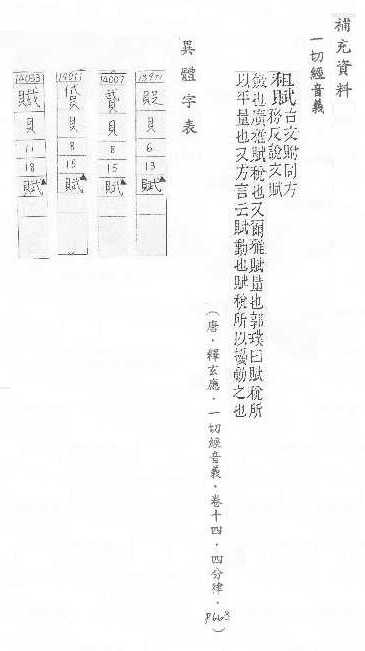 補充資料
一切經音義
租賦古文賦同方
務反說文賦
斂也廣雅賦稅也又爾雅賦量也郭璞曰賦稅所
以平量也又方言云賦動也賦稅所以擾動之也
(唐.釋玄應.一切經音義.卷十四.四分律.P663)
異體字表
貝
6
13
賦▲
14007
貝
8
15
賦▲
14011
貝
8
15
賦▲
14053
貝
11
18
賦▲